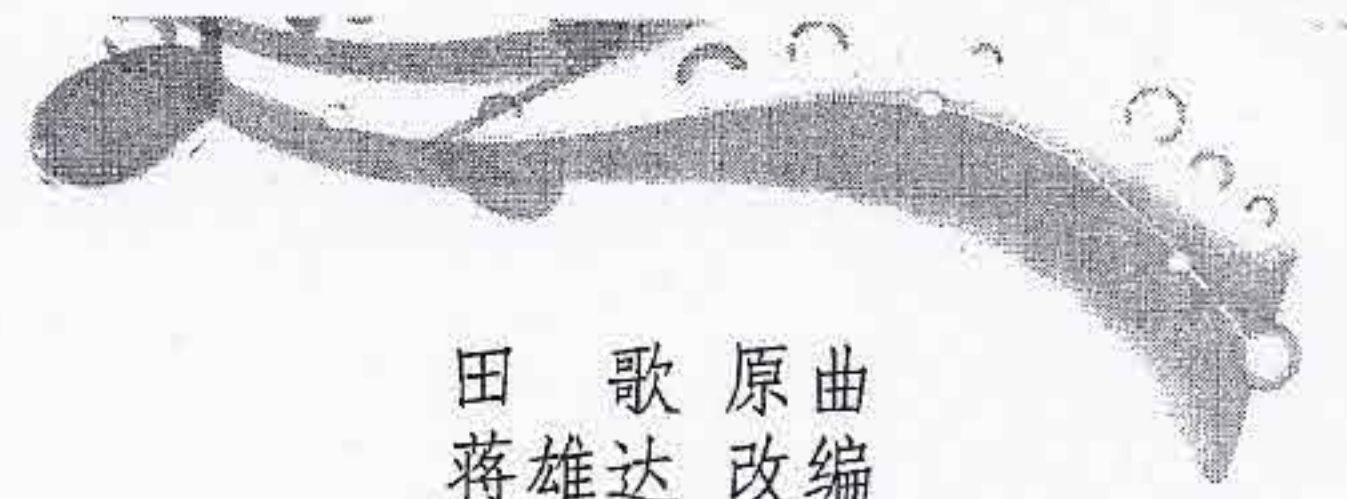 田 歌 原曲
蒋雄达 改编